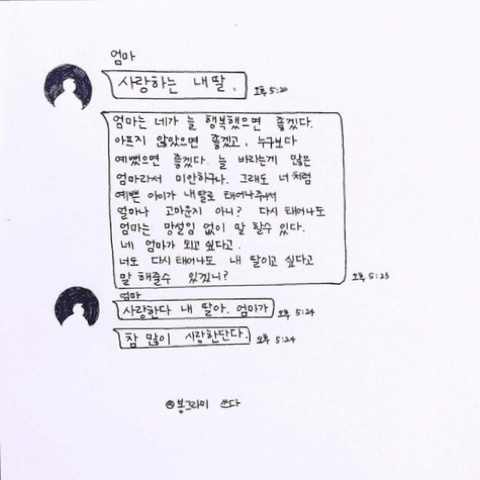 엄마
사랑하는 내 딸. 오후 5:20
엄마는 네가 늘 행복했으면 좋겠다.
아프지 않았으면 좋겠고, 누구보다
예뻤으면 좋겠다. 늘 바라는게 많은
엄마라서 미안하구나. 그래도 너처럼
예쁜 아이가 내 딸로 태어나주어서
얼마나 고마운지 아니? 다시 태어나도
엄마는 망설임 없이 말 할수 있다.
네 엄마가 되고 싶다고.
너도 다시 태어나도 내 딸이고 싶다고
말 해줄수 있겠니? 오후 5:23
엄마
사랑한다 내 딸아. 엄마가 오후 5:24
참 많이 사랑한단다. 오후 5:24
@봉그라미 쓰다